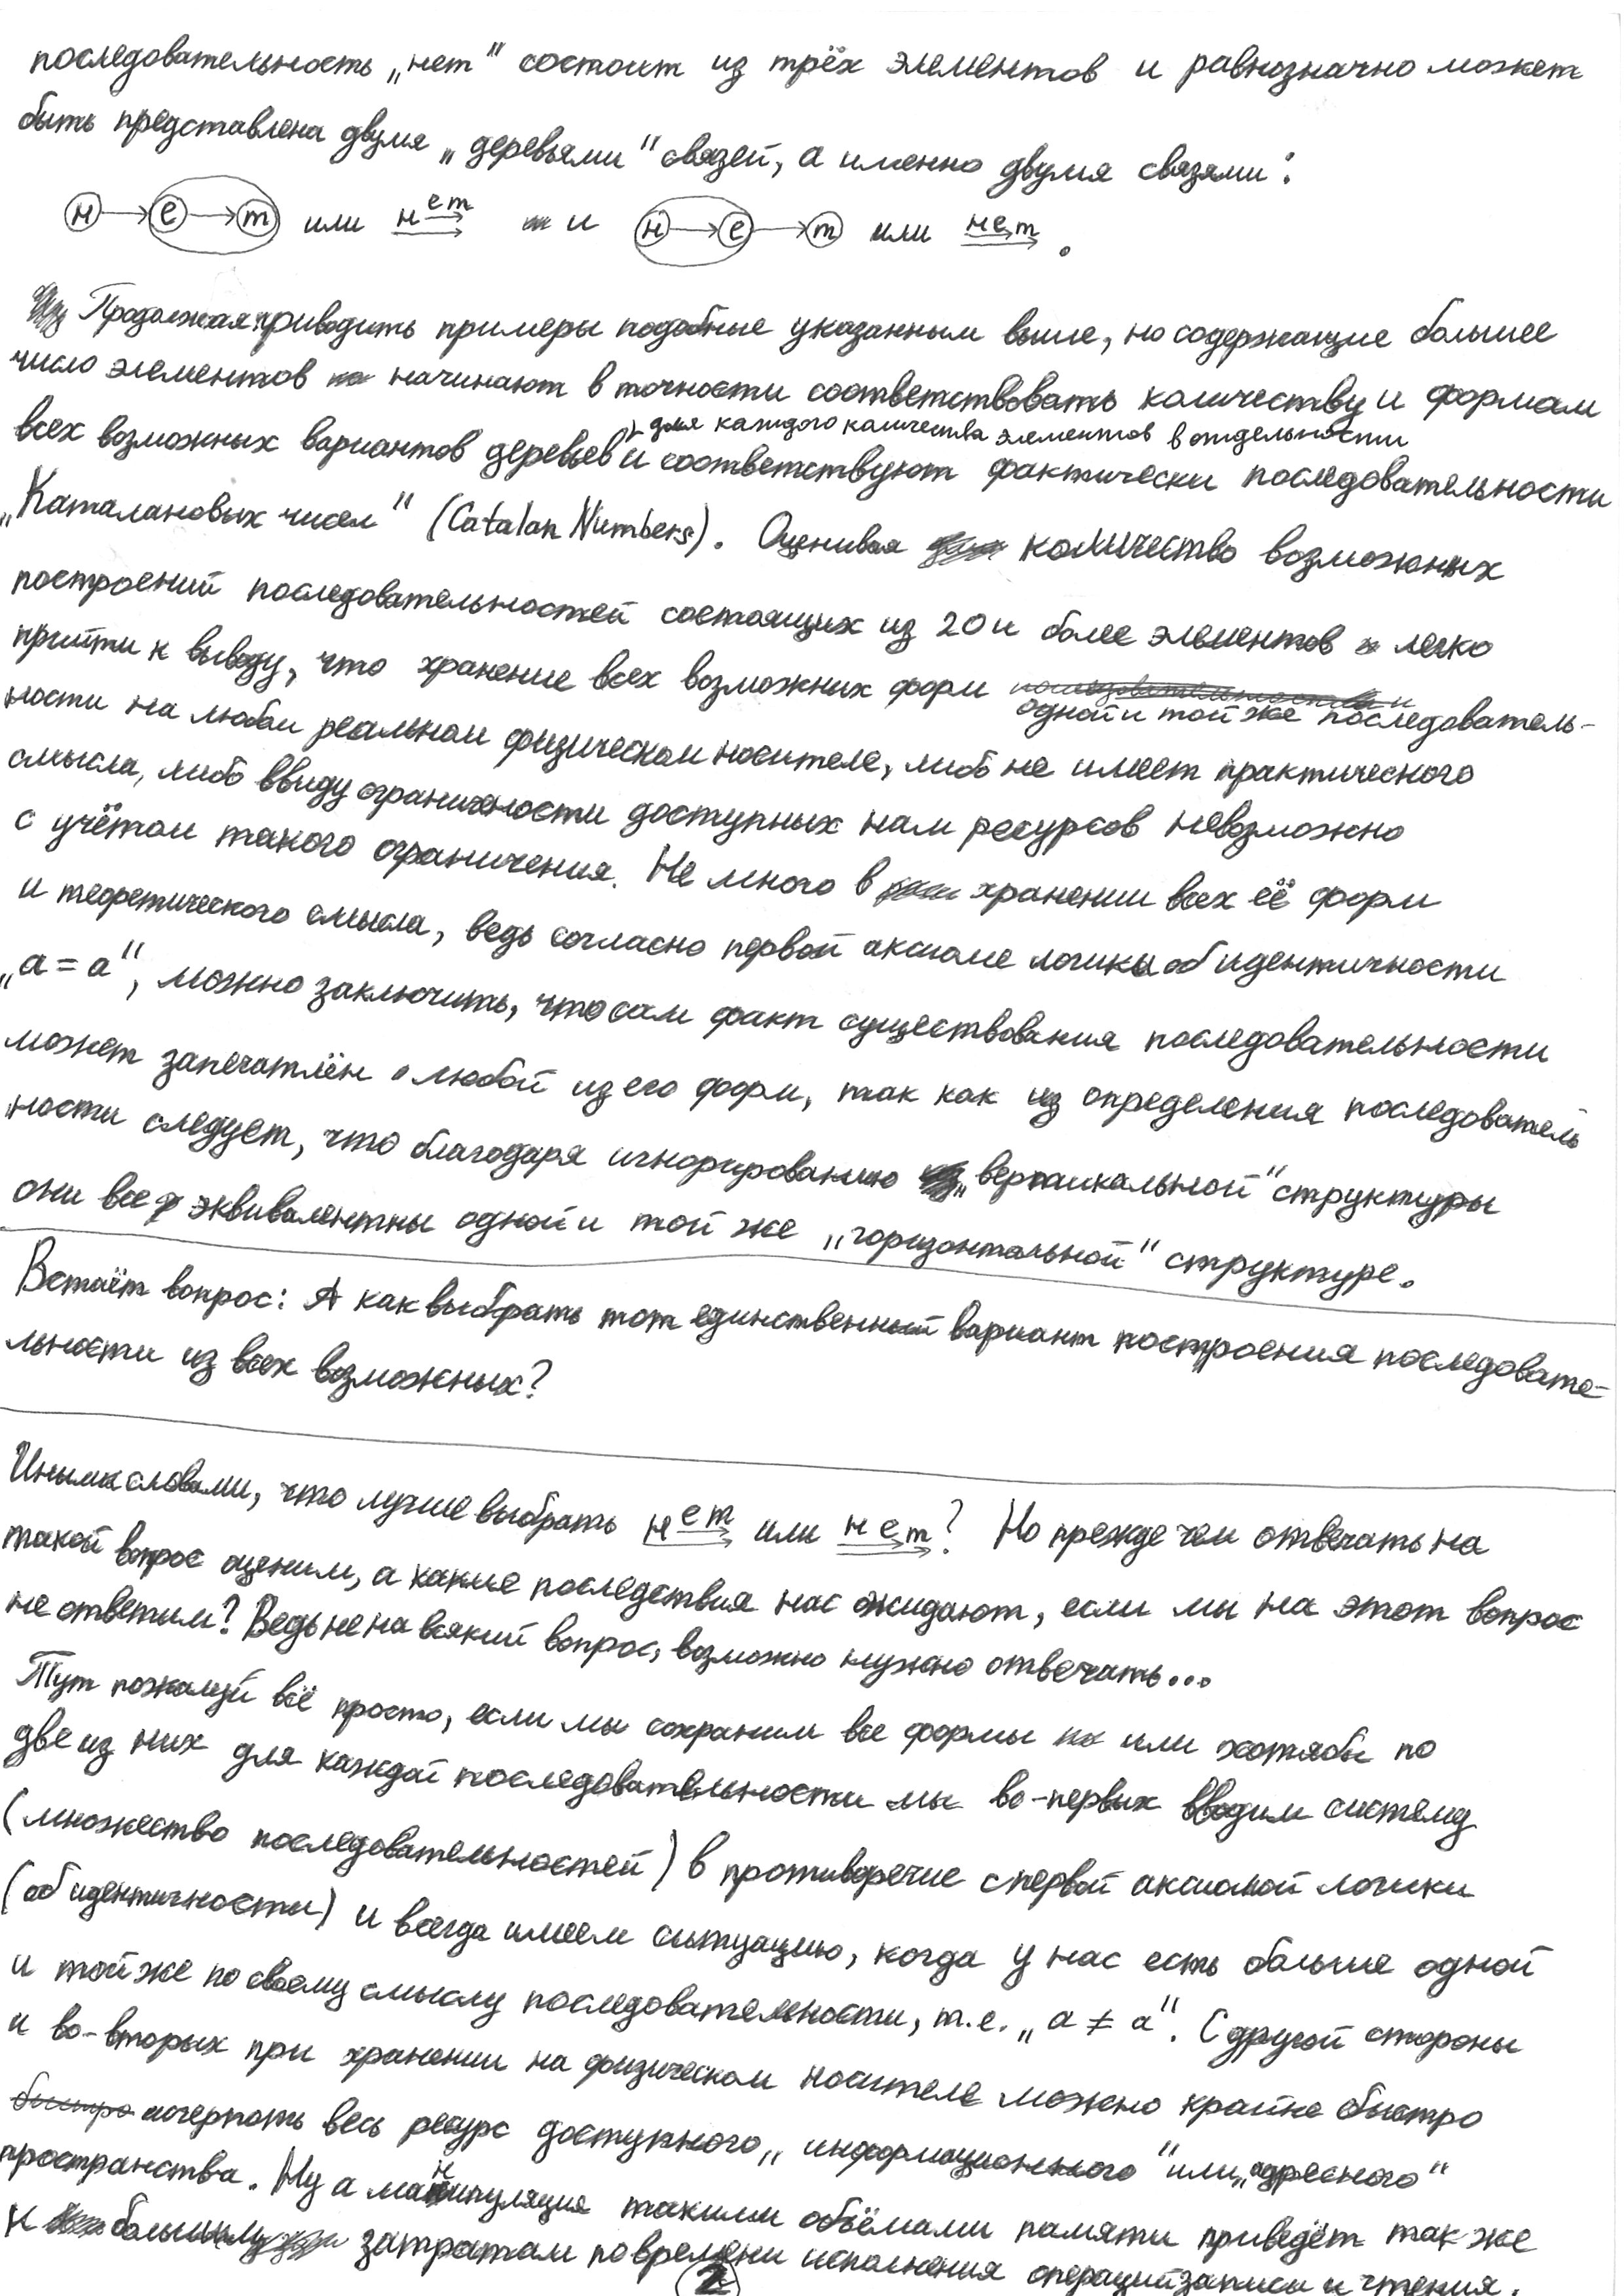 последовательность „нет" состоит из трёх элементов и равнозначно может
быть представлена двумя „деревьями" связей, а именно двумя связями:
н → е → т или н ет и н → е → т или не т .
Продолжая приводить примеры подобные указанным выше, но содержащие большее
число элементов начинают в точности соответствовать количеству и формам
для каждого количества элементов в отдельности
всех возможных вариантов деревьев и соответствуют фактически последовательности
„Каталановых чисел" (Catalan Numbers). Оценивая количество возможных
построений последовательностей состоящих из 20 и более элементов легко
прийти к выводу, что хранение всех возможных форм
одной и той же последователь-
ности на любом реальном физическом носителе, либо не имеет практического
смысла, либо ввиду ограничености доступных нам ресурсов невозможно
с учётом такого ограничения. Не много в хранении всех её форм
и теоретического смысла, ведь согласно первой аксиоме логики об идентичности
„а = а", можно заключить, что сам факт существования последовательности
может запечатлён любой из его форм, так как из определения последователь
ности следует, что благодаря игнорированию „вертикальной" структуры
они все эквивалентны одной и той же „горизонтальной" структуре.
Встаёт вопрос: А как выбрать тот единственный вариант построения последовате-
льности из всех возможных?
Иными словами, что лучше выбрать н ет или не т? Но прежде чем отвечать на
такой вопрос оценим, а какие последствия нас ожидают, если мы на этот вопрос
не ответим? Ведь не на всякий вопрос, возможно нужно отвечать...
Тут пожалуй всё просто, если мы сохраним все формы или хотябы по
две из них для каждой последовательности мы во-первых вводим систему
(множество последовательностей) в противоречие с первой аксиомой логики
(об идентичности) и всегда имеем ситуацию, когда у нас есть больше одной
и той же по своему смыслу последовательности, т.е. „а ≠ а". С другой стороны
и во-вторых при хранении на физическом носителе можно крайне быстро
быстро исчерпать весь ресурс доступного „информационного" или „адресного"
пространства. Ну а манипуляция такими объёмами памяти приведёт так же
к большим затратам по времени исполнения операций записи и чтения.
2